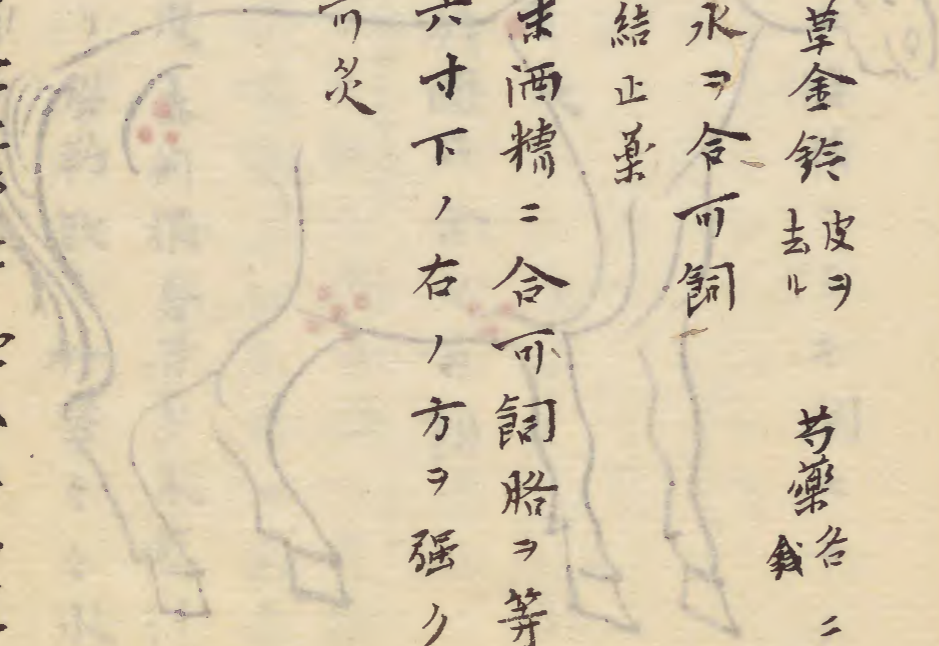 草金鈴皮ヲ去ル 芍薬各二戔
水ヲ合可飼
結正薬
末酒糟ニ合可飼胳ヲ等
六寸下ノ右ノ方ヲ强ク
可灸